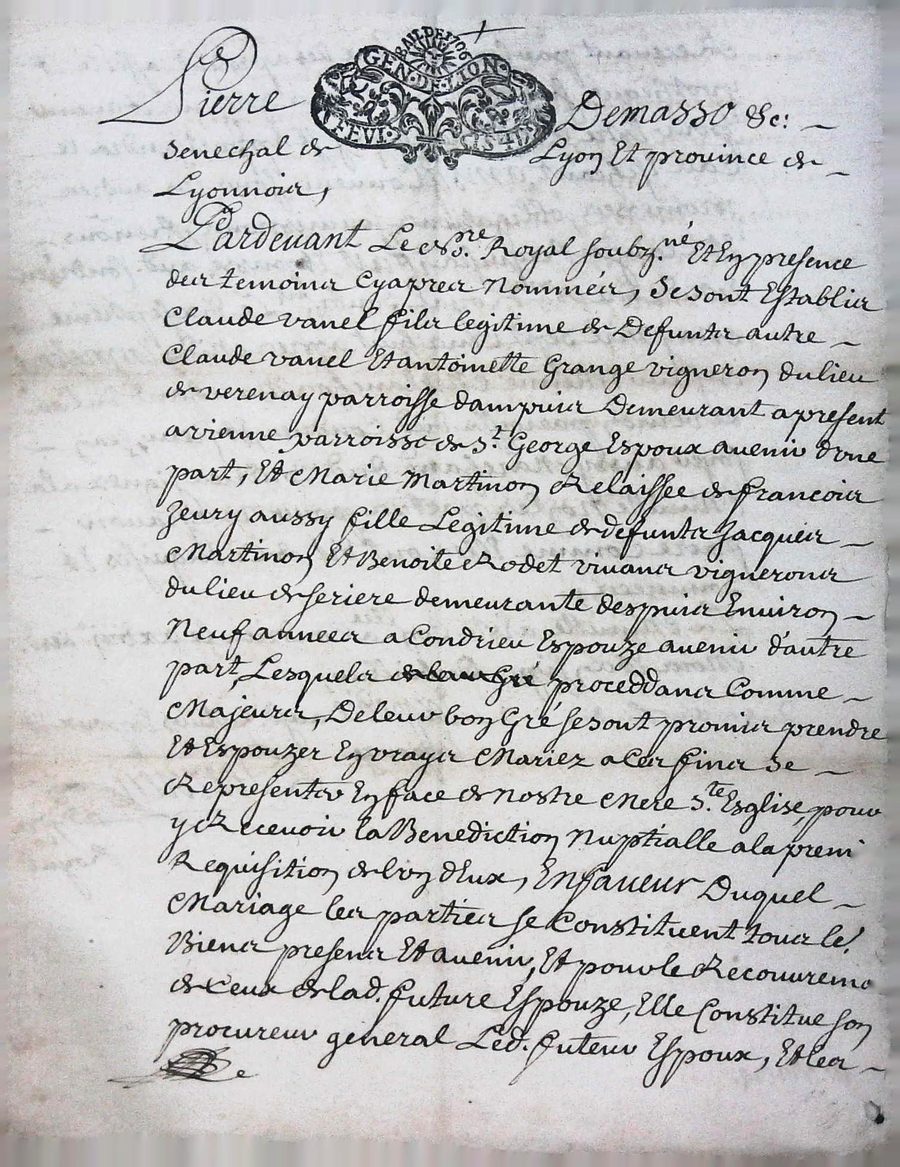 BAIL DE 1706
GEN · DE · LION ·
FEVI ·
Pierre Demasso &c:
Senechal de Lyon Et province de
Lyonnois,
Pardevant Le Nre. Royal soubz.né Et En presence
des temoins Cyapres nommés, se sont Establis
Claude vanel fils legitime de Defunts autre
Claude vanel Et antoinette Grange vigneron du lieu
de verenay parroisse dampuis Demeurant a present
a vienne parroisse de St. George Espoux avenir dvne
part, Et Marie Martinon Relaissée de francois
Zeury aussy fille Legitime de defunts Jacques
Martinon Et Benoite Rodet vivans vignerons
du lieu de seriere demeurante despuis Environ
Neuf années a Condrieu Espouze avenir d'autre
part, Lesquels de leur Gré proceddans Comme
Majeurs, De leur bon Gré se sont promis prendre
Et Espouzer En vrays Mariez a Ces fins se
Representer En face de Nostre Mere Ste Esglise, pour
y Recevoir la Benediction Nuptialle a la premi
Requisition de lvn dEux, En faveur Duquel
Mariage les parties se Constituent tous les
Biens presens Et avenir, Et pour le Recouvreme
de Ceux de lad. future Espouze, Elle Constitue son
procureur general Led. futeur Espoux, Et les